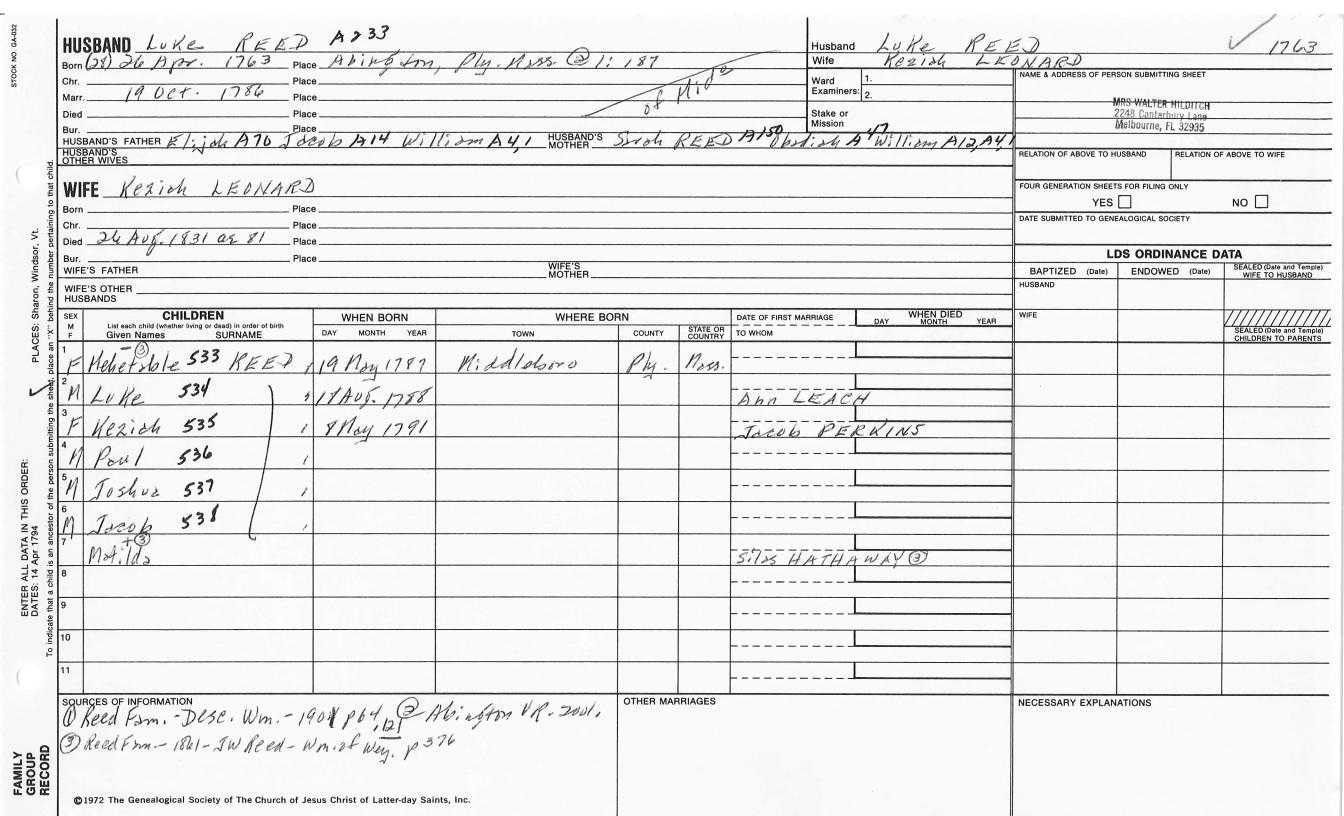 STOCK NO. GA-032
HUSBAND Luke REED A233
Born (28) 26 Apr. 1763 Place Abington, Ply. Mass ② 1: 187
Chr. Place
Marr. 19 Oct. 1786 Place
of Midd
Died Place
Bur. Place
HUSBAND'S FATHER Elijah A70 Jacob A14 William A4,1 HUSBAND'S MOTHER Sarah REED A150 Obadiah A47 William A12, A4,1
HUSBAND'S OTHER WIVES
WIFE Keziah LEONARD
Born Place
Chr. Place
Died 26 Aug. 1831 ae 81 Place
Bur. Place
WIFE'S FATHER WIFE'S MOTHER
WIFE'S OTHER HUSBANDS
Husband Luke REED 1763
Wife Keziah LEONARD
Ward Examiners: 1.
2.
Stake or Mission
NAME & ADDRESS OF PERSON SUBMITTING SHEET
MRS WALTER HILDITCH
2248 Canterbury Lane
Melbourne, FL 32935
RELATION OF ABOVE TO HUSBAND RELATION OF ABOVE TO WIFE
FOUR GENERATION SHEETS FOR FILING ONLY
YES NO
DATE SUBMITTED TO GENEALOGICAL SOCIETY
LDS ORDINANCE DATA
BAPTIZED (Date) ENDOWED (Date) SEALED (Date and Temple) WIFE TO HUSBAND
HUSBAND
WIFE
SEALED (Date and Temple) CHILDREN TO PARENTS
SEX M F CHILDREN WHEN BORN WHERE BORN DATE OF FIRST MARRIAGE WHEN DIED
List each child (whether living or dead) in order of birth
Given Names SURNAME DAY MONTH YEAR TOWN COUNTY STATE OR COUNTRY TO WHOM DAY MONTH YEAR
1 F Mehetible ③ 533 REED 19 May 1787 Middleboro Ply. Mass.
2 M Luke 534 18 Aug. 1788 Ann LEACH
3 F Keziah 535 8 May 1791 Jacob PERKINS
4 M Paul 536
5 M Joshua 537
6 M Jacob 538
7 Matilda +③ Silas HATHAWAY ③
8
9
10
11
SOURCES OF INFORMATION
① Reed Fam. - Desc. Wm. - 1901 p 64, 121 ② Abington VR.
③ Reed Fam. - 1861 - JW Reed - Wm. of Wey. p 376
OTHER MARRIAGES
NECESSARY EXPLANATIONS
©1972 The Genealogical Society of The Church of Jesus Christ of Latter-day Saints, Inc.
FAMILY GROUP RECORD
ENTER ALL DATA IN THIS ORDER:
DATES: 14 Apr 1794
PLACES: Sharon, Windsor, Vt.
To indicate that a child is an ancestor of the person submitting the sheet, place an "X" behind the number pertaining to that child.